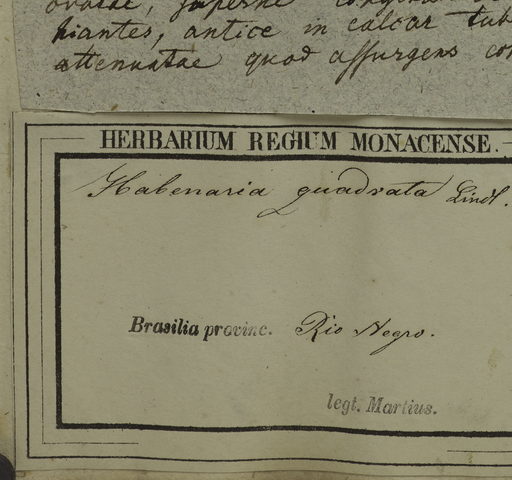 ovatae, superne
hiantes, antice in calcar tub
attenuatae quod assurgens con
HERBARIUM REGIUM MONACENSE.
Habenaria quadrata Lindl.
Brasilia provinc. Rio Negro.
legt. Martius.